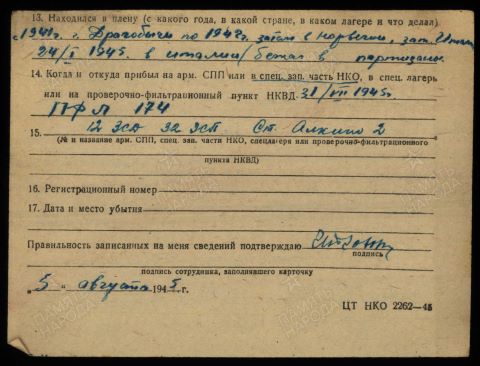 13. Находился в плену (с какого года, в какой стране, в каком лагере и что делал)
с 1941 г. г. Драгобыч по 1942 г. затем в Норвегии, зат.
24/I 1945. в италии /бежал в партизаны
14. Когда и откуда прибыл на арм. СПП или в спец. зап. часть НКО, в спец. лагерь
или на проверочно-фильтрационный пункт НКВД. 31/VII 1945г.
ПФЛ 174
15. 12 ЗСД 32 ЗСП Ст. Алкино 2
(№ и название арм. СПП, спец. зап. части НКО, спецлагеря или проверочно-фильтрационного
пункта НКВД)
16. Регистрационный номер
17. Дата и место убытия
Правильность записанных на меня сведений подтверждаю
подпись
подпись сотрудника, заполнявшего карточку
„5" августа 1945 г.
ЦТ НКО 2262—45
ПАМЯТЬ НАРОДА